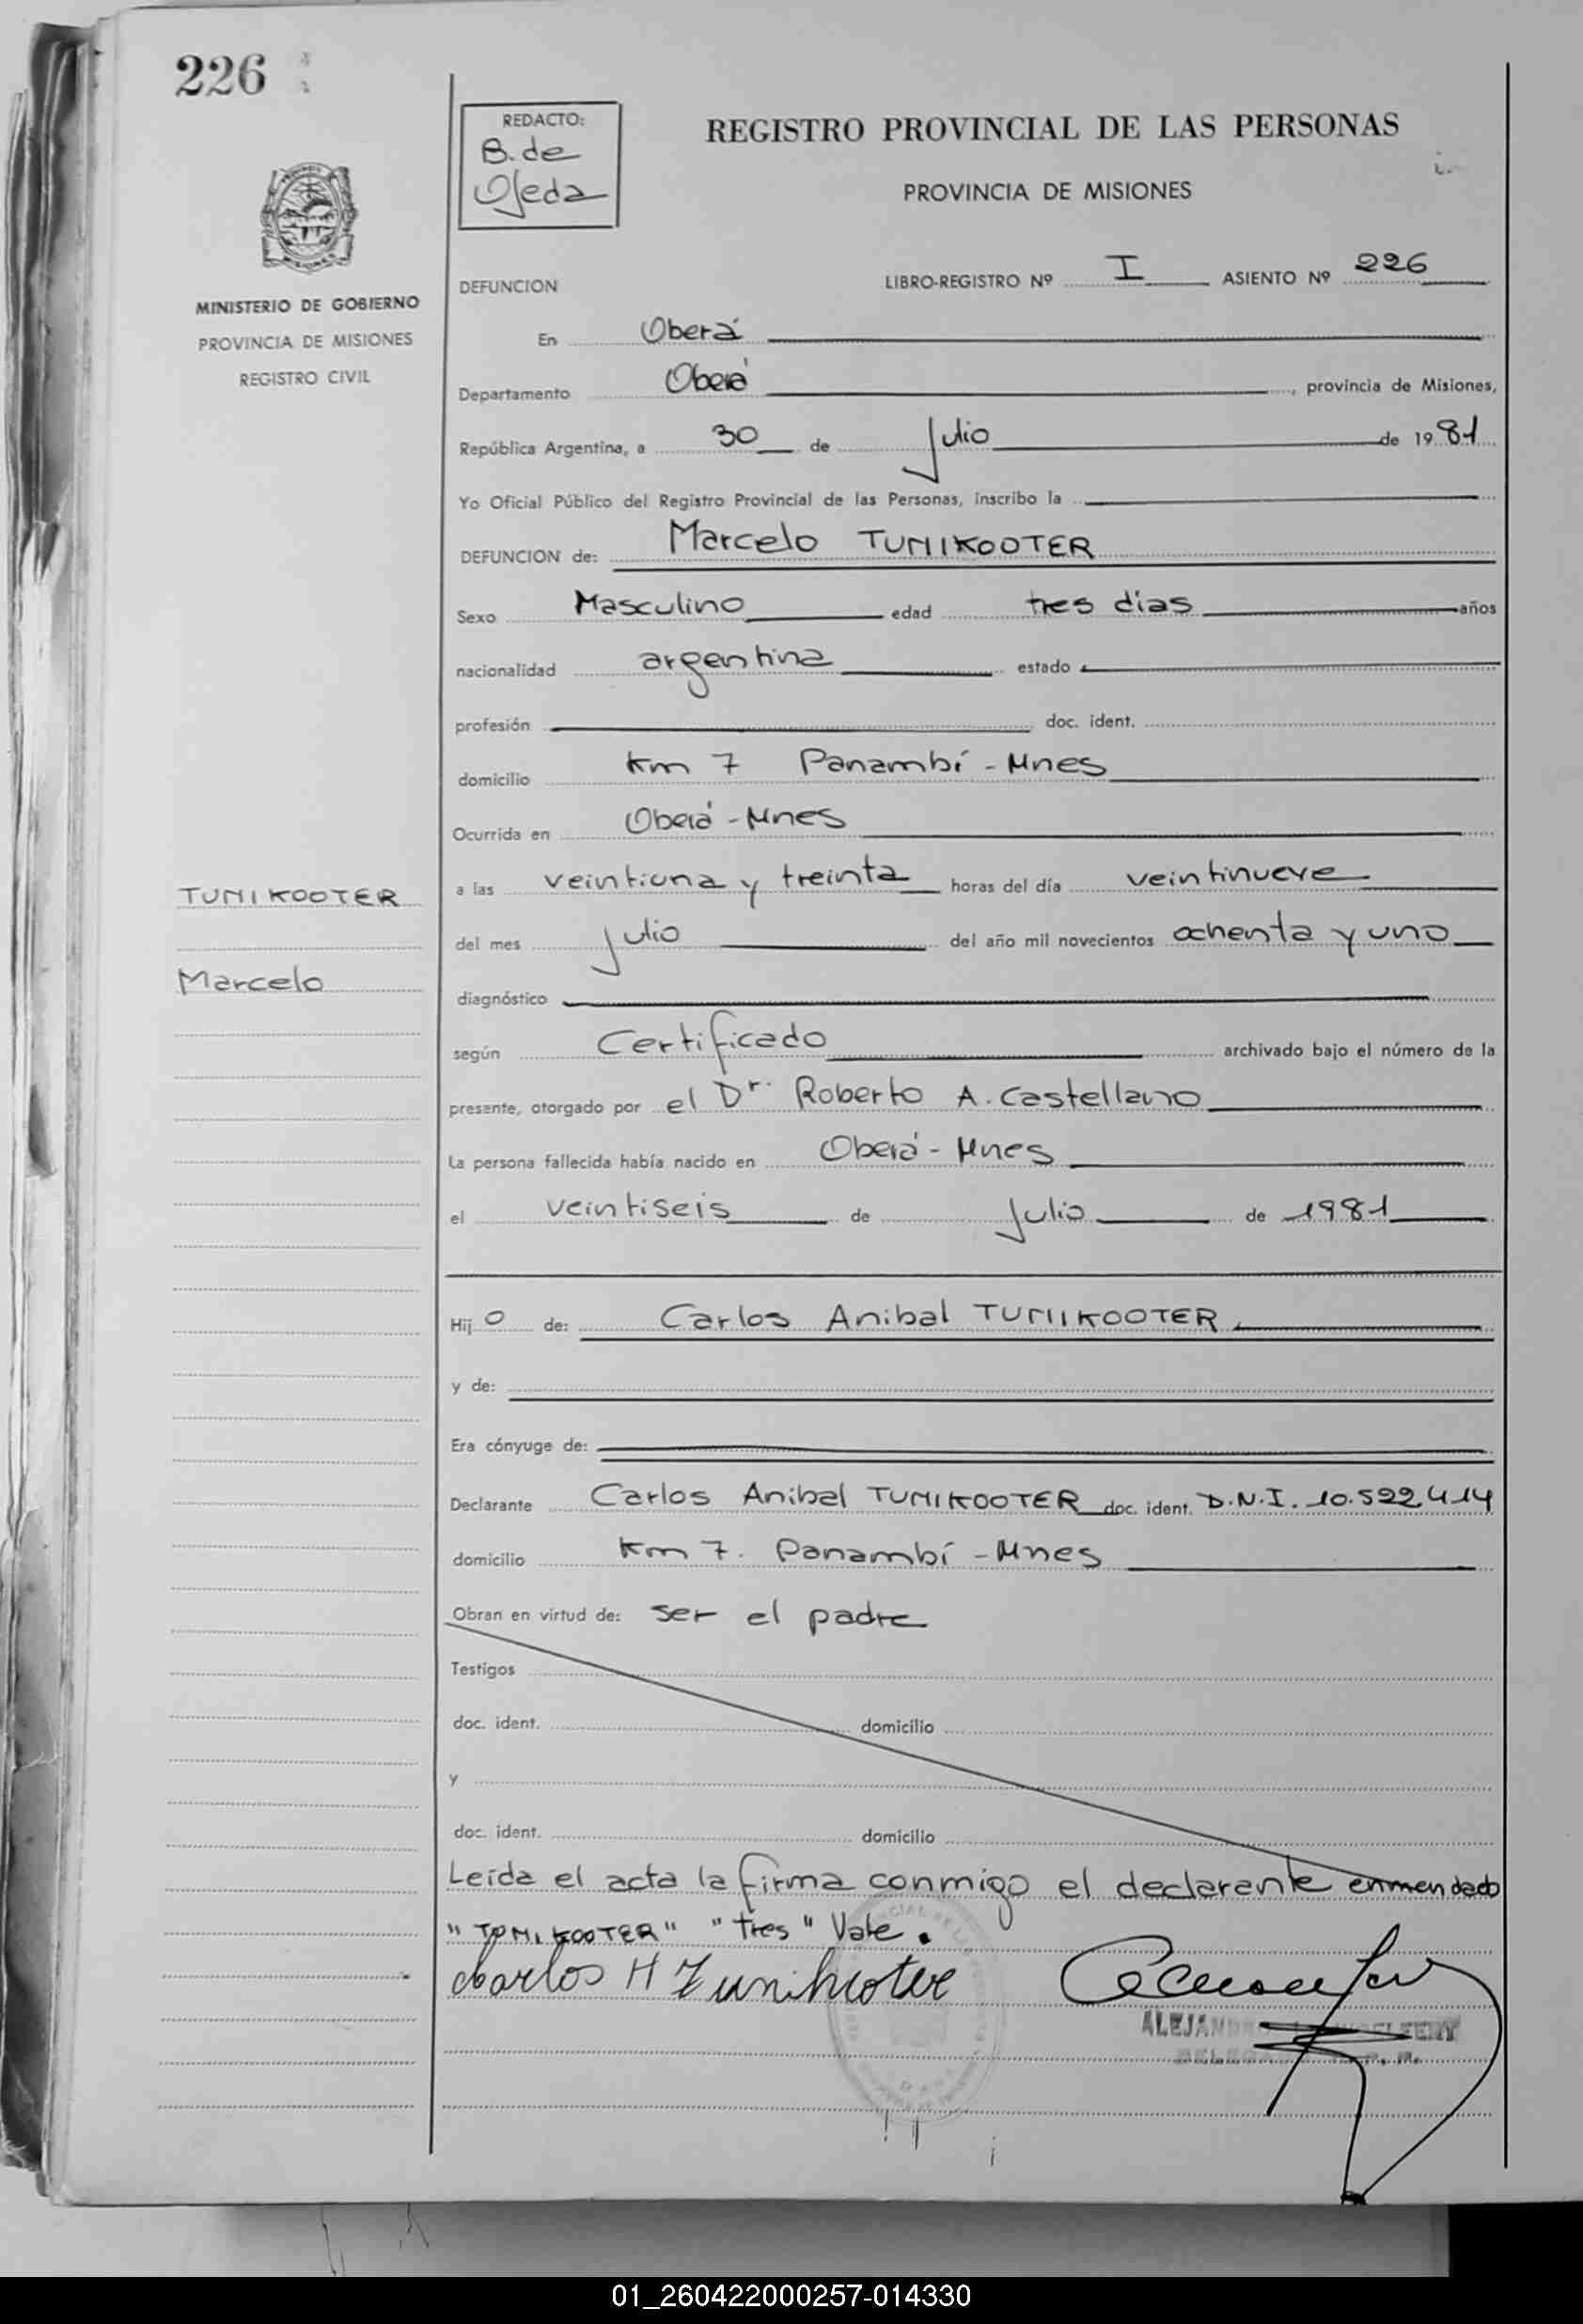 226
REDACTO:
B. de
Ojeda
REGISTRO PROVINCIAL DE LAS PERSONAS
PROVINCIA DE MISIONES
MINISTERIO DE GOBIERNO
PROVINCIA DE MISIONES
REGISTRO CIVIL
DEFUNCION LIBRO-REGISTRO Nº I ASIENTO Nº 226
En Oberá
Departamento Oberá, provincia de Misiones,
República Argentina, a 30 de Julio de 1981
Yo Oficial Público del Registro Provincial de las Personas, inscribo la
DEFUNCION de: Marcelo TUNIKOOTER
Sexo Masculino edad tres días años
nacionalidad argentina estado
profesión doc. ident.
domicilio Km 7 Panambí - Mnes
Ocurrida en Oberá - Mnes
TUNIKOOTER
Marcelo
a las veintiuna y treinta horas del día veintinueve
del mes Julio del año mil novecientos ochenta y uno
diagnóstico
según Certificado archivado bajo el número de la
presente, otorgado por el Dr. Roberto A. Castellano
La persona fallecida había nacido en Oberá - Mnes
el veintiseis de Julio de 1981
Hijo de: Carlos Anibal TUNIKOOTER
y de:
Era cónyuge de:
Declarante Carlos Anibal TUNIKOOTER doc. ident. D.N.I. 10.522.414
domicilio Km 7. Panambí - Mnes
Obran en virtud de: ser el padre
Testigos
doc. ident. domicilio
y
doc. ident. domicilio
Leída el acta la firma conmigo el declarante enmendado
"TUNIKOOTER" "tres" Vale.
Carlos
ALEJAN
01_260422000257-014330